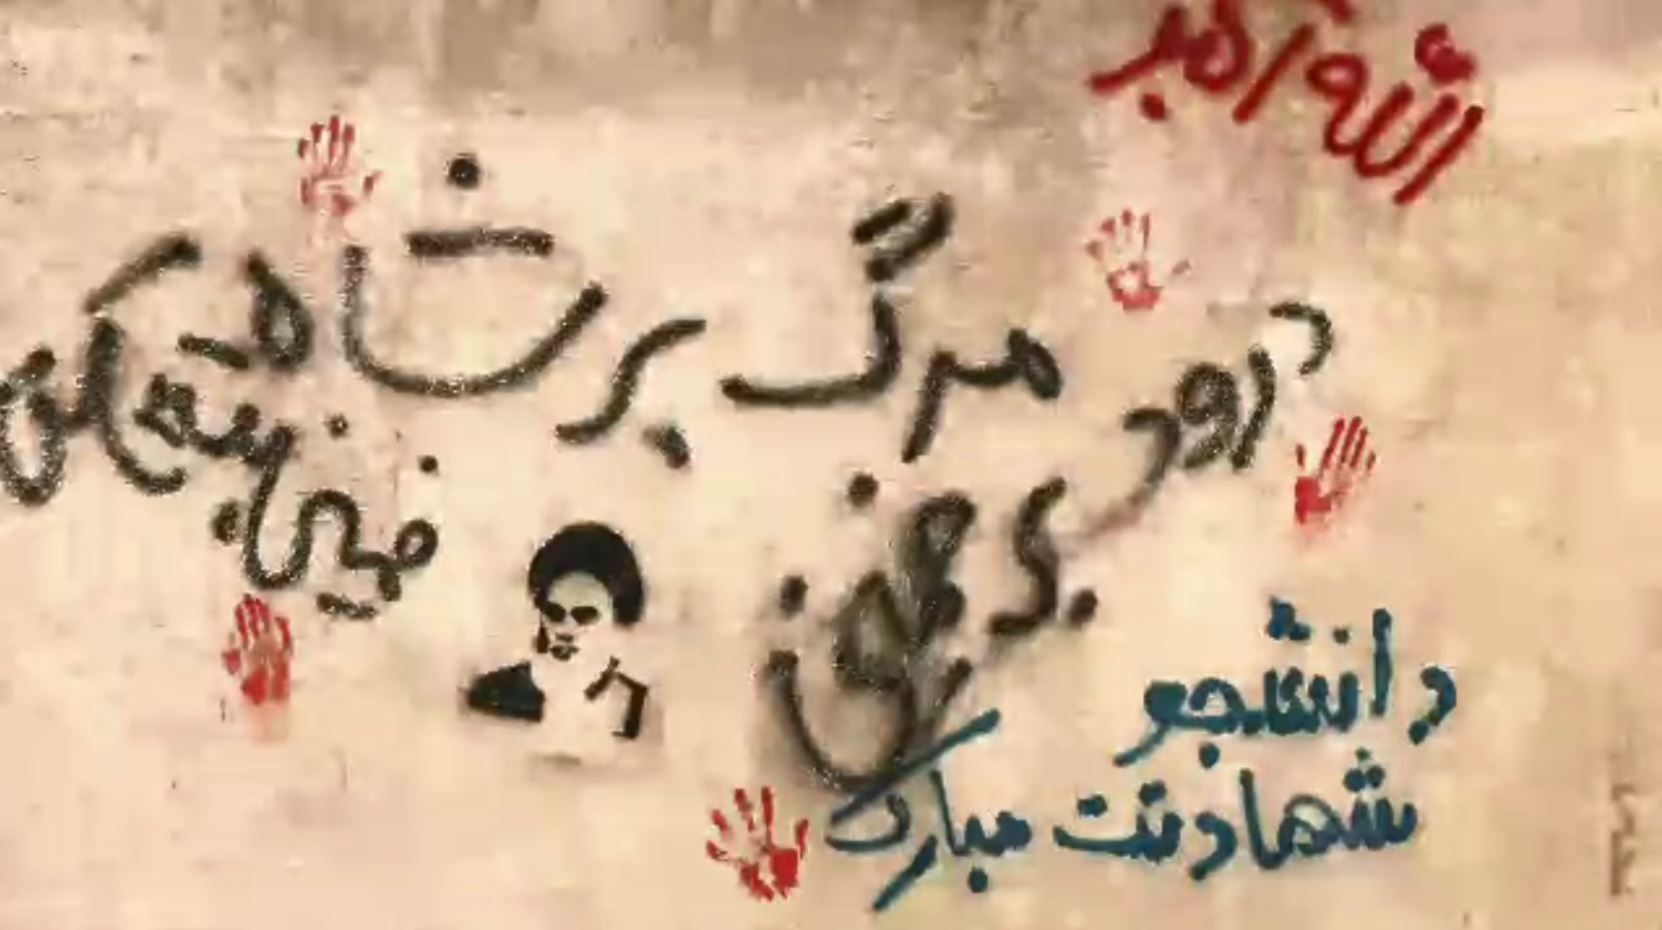 الله اکبر
مرگ بر شاه
درود
بر خمینی
دانشجو
شهادتت مبارک